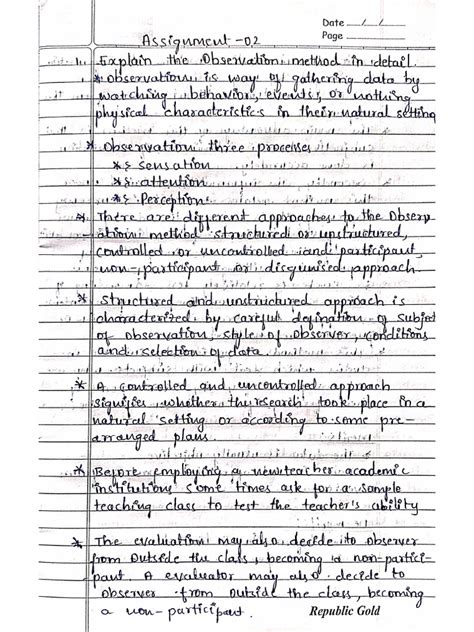 Date __/__/__
Page ______
Assignment -02
1. Explain the Observation method in detail
* Observation is way of gathering data by
watching behavior, events, or nothing
physical characteristics in their natural setting
* Observation three processes
* Sensation
* attention
* Perception
* There are different approaches to the Observ-
ation method structured or unstructured,
controlled or uncontrolled and participant,
non-participant or disguised approach.
* Structured and unstructured approach is
characterized by careful defination of subject
of observation, style of observer, conditions
and selection of data
* A controlled and uncontrolled approach
signifies whether the research took place in a
natural setting or according to some pre-
arranged plans.
* Before employing a new teacher academic
institutions some times ask for a sample
teaching class to test the teacher's ability
* The evaluation may also decide to observer
from outside the class, becoming a non-partici-
pant. A evaluator may also decide to
observer from outside the class, becoming
a non-participant.
Republic Gold